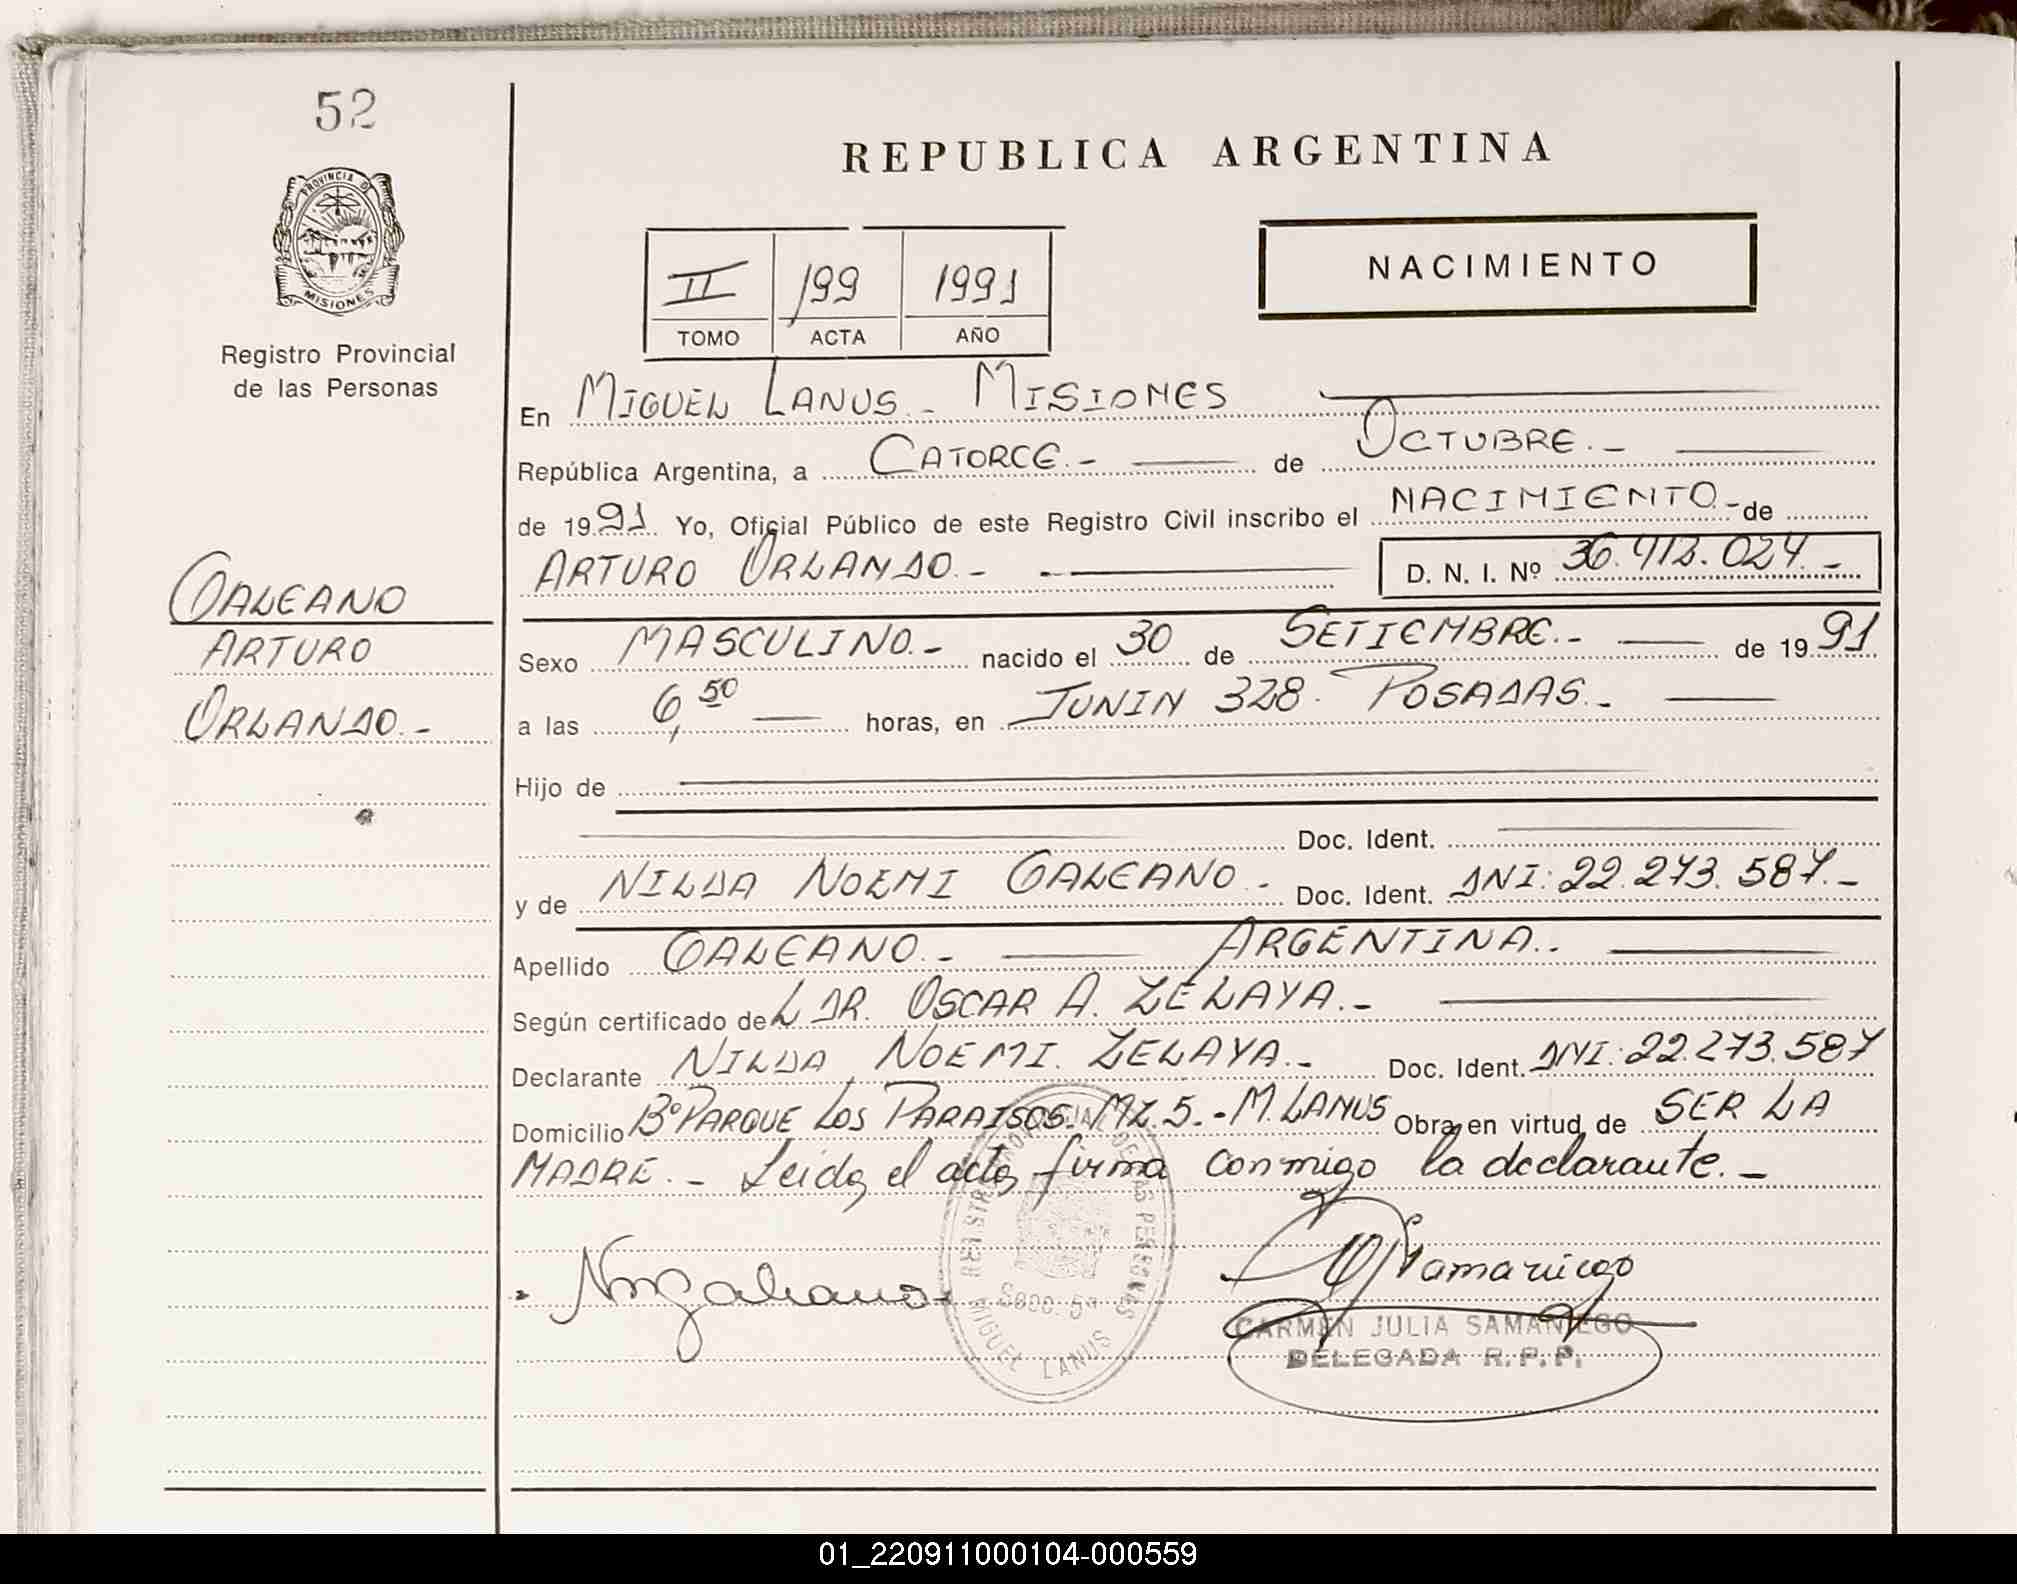 52
REPUBLICA ARGENTINA
PROVINCIA DE MISIONES
Registro Provincial
de las Personas
NACIMIENTO
II 199 1991
TOMO ACTA AÑO
En MIGUEL LANUS - MISIONES
República Argentina, a CATORCE.- de OCTUBRE.-
de 1991. Yo, Oficial Público de este Registro Civil inscribo el NACIMIENTO.- de
ARTURO ORLANDO.- D. N. I. Nº 36.412.024.-
GALEANO
ARTURO
ORLANDO.-
Sexo MASCULINO.- nacido el 30 de SETIEMBRE.- de 1991
a las 6,50 horas, en JUNIN 328. POSADAS.-
Hijo de
Doc. Ident.
y de NILDA NOEMI GALEANO.- Doc. Ident. DNI: 22.273.587.-
Apellido GALEANO.- ARGENTINA..
Según certificado del DR. OSCAR A. ZELAYA.-
Declarante NILDA NOEMI. ZELAYA.- Doc. Ident. DNI: 22.273.587
Domicilio Bº PARQUE LOS PARAISOS. MZ. 5.- M. LANUS Obra en virtud de SER LA
MADRE.- Leida el acta firma conmigo la declarante.-
REGISTRO PROVINCIAL DE LAS PERSONAS
SECC. 5ª
MIGUEL LANUS
NNGaleano
Samaniego
CARMEN JULIA SAMANIEGO
DELEGADA R.P.P.
01_220911000104-000559